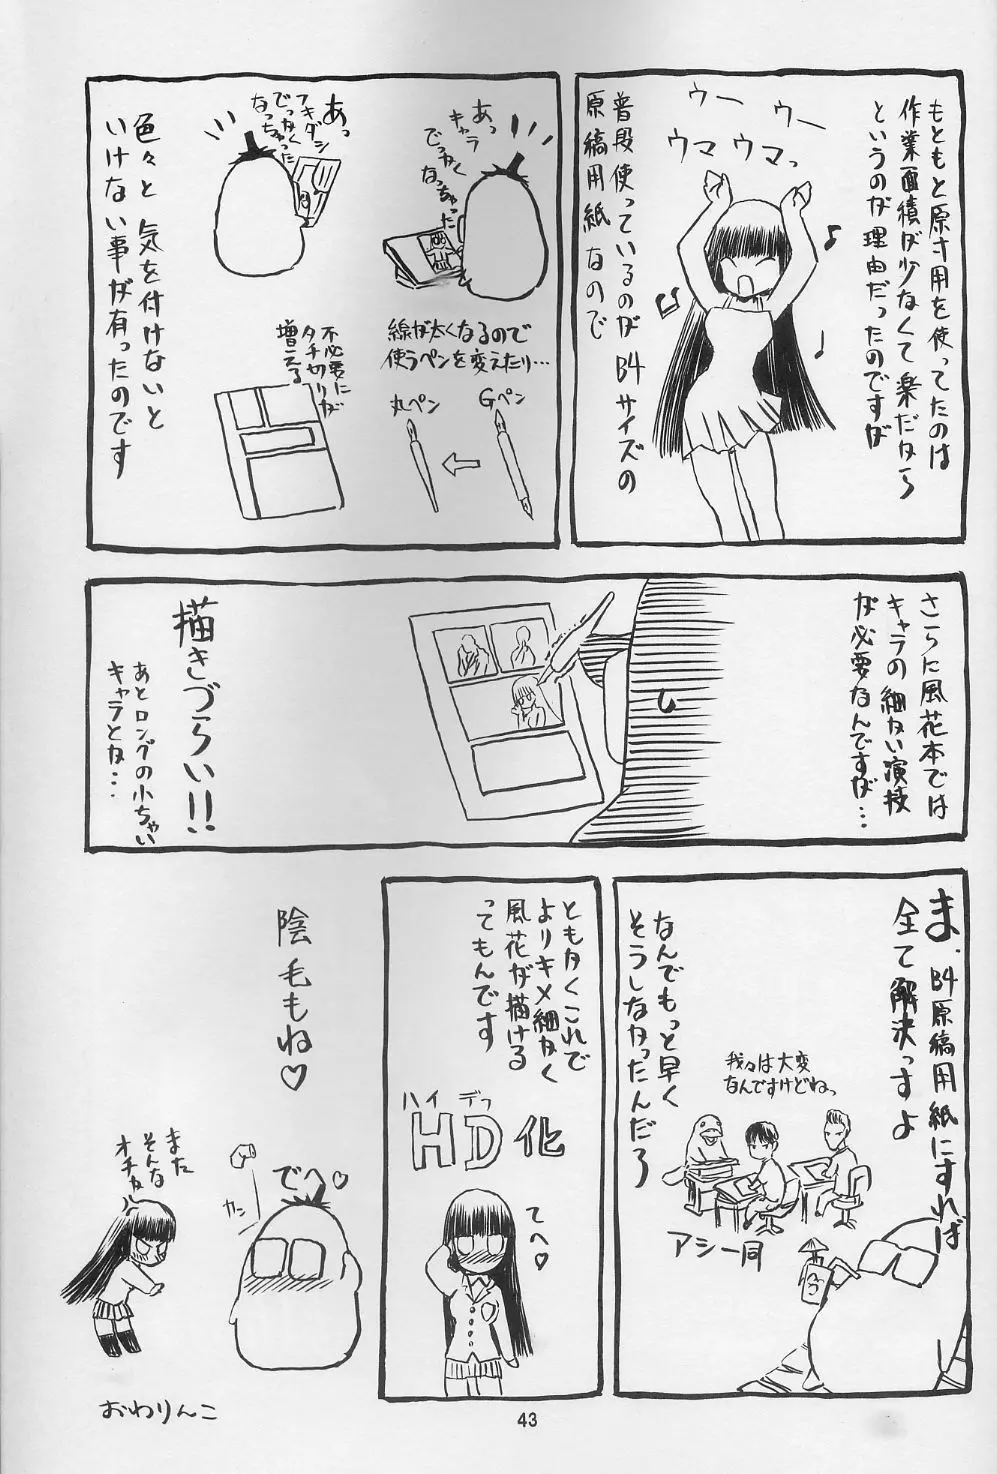 もともと原寸用を使ってたのは
作業面積が少なくて楽だから
というのが理由だったのですが
ウー
ウー
ウマ
ウマっ
普段使っているのがB4サイズの
原稿用紙なので
あっ
キャラ
でっかく
なっちゃった
あっ
フキダシ
でっかく
なっちゃった
線が太くなるので
使うペンを変えたり…
Gペン
丸ペン
不必要に
タチ切りが
増える
色々と気を付けないと
いけない事が有ったのです
さらに風花本では
キャラの細かい演技
が必要なんですが…
描きづらい!!
あとロングの小ちゃい
キャラとか…
ま、B4原稿用紙にすれば
全て解決っすよ
我々は大変
なんですけどねっ
アシ一同
なんでもっと早く
そうしなかったんだろ
ともかくこれで
よりキメ細かく
風花が描ける
ってもんです
ハイデフ
HD化
てへ♡
陰毛もね♡
でへ♡
カン
また
そんな
オチか
おわりんこ
43